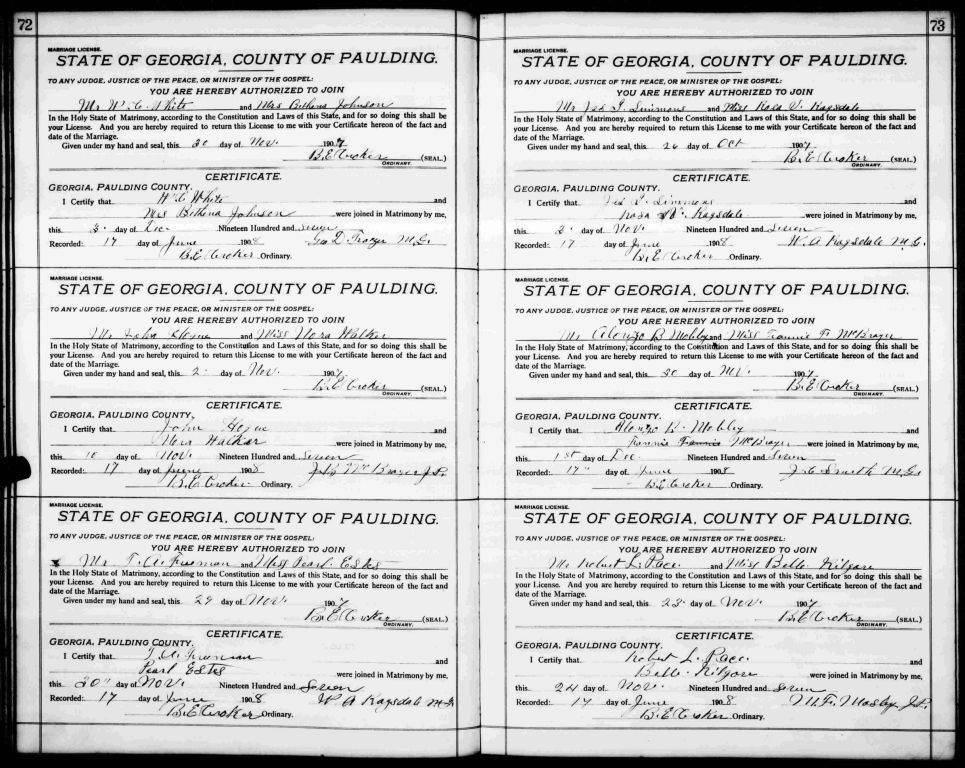 72
MARRIAGE LICENSE.
STATE OF GEORGIA, COUNTY OF PAULDING.
TO ANY JUDGE, JUSTICE OF THE PEACE, OR MINISTER OF THE GOSPEL:
YOU ARE HEREBY AUTHORIZED TO JOIN
Mr W. C. White and Mrs Bethena Johnson
In the Holy State of Matrimony, according to the Constitution and Laws of this State, and for so doing this shall be
your License. And you are hereby required to return this License to me with your Certificate hereon of the fact and
date of the Marriage.
Given under my hand and seal, this 30 day of Nov. 1907
B. E. Croker (SEAL.)
ORDINARY.
CERTIFICATE.
GEORGIA, PAULDING COUNTY.
I Certify that W. C. White and
Mrs Bethena Johnson were joined in Matrimony by me,
this 2. day of Dec. Nineteen Hundred and Seven
Recorded: 17 day of June 1908 Geo D. Frazer M. G.
B. E. Croker Ordinary.
MARRIAGE LICENSE.
STATE OF GEORGIA, COUNTY OF PAULDING.
TO ANY JUDGE, JUSTICE OF THE PEACE, OR MINISTER OF THE GOSPEL:
YOU ARE HEREBY AUTHORIZED TO JOIN
Mr John Hogue and Miss Nora Walker
In the Holy State of Matrimony, according to the Constitution and Laws of this State, and for so doing this shall be
your License. And you are hereby required to return this License to me with your Certificate hereon of the fact and
date of the Marriage.
Given under my hand and seal, this 2. day of Nov. 1907
B. E. Croker (SEAL.)
ORDINARY.
CERTIFICATE.
GEORGIA, PAULDING COUNTY.
I Certify that John Hogue and
Nora Walker were joined in Matrimony by me,
this 10 day of Nov. Nineteen Hundred and Seven
Recorded: 17 day of June 1908 McBrayer J. P.
B. E. Croker Ordinary.
MARRIAGE LICENSE.
STATE OF GEORGIA, COUNTY OF PAULDING.
TO ANY JUDGE, JUSTICE OF THE PEACE, OR MINISTER OF THE GOSPEL:
YOU ARE HEREBY AUTHORIZED TO JOIN
Mr T. A. Freeman and Miss Pearl Estes
In the Holy State of Matrimony, according to the Constitution and Laws of this State, and for so doing this shall be
your License. And you are hereby required to return this License to me with your Certificate hereon of the fact and
date of the Marriage.
Given under my hand and seal, this 29 day of Nov. 1907
B. E. Croker (SEAL.)
ORDINARY.
CERTIFICATE.
GEORGIA, PAULDING COUNTY.
I Certify that T. A. Freeman and
Pearl Estes were joined in Matrimony by me,
this 30" day of Nov. Nineteen Hundred and Seven
Recorded: 17 day of June 1908 W A Ragsdale M. G.
B. E. Croker Ordinary.
73
MARRIAGE LICENSE.
STATE OF GEORGIA, COUNTY OF PAULDING.
TO ANY JUDGE, JUSTICE OF THE PEACE, OR MINISTER OF THE GOSPEL:
YOU ARE HEREBY AUTHORIZED TO JOIN
Mr Simmons and Miss Rosa V. Ragsdale
In the Holy State of Matrimony, according to the Constitution and Laws of this State, and for so doing this shall be
your License. And you are hereby required to return this License to me with your Certificate hereon of the fact and
date of the Marriage.
Given under my hand and seal, this 26 day of Oct 1907
B. E. Croker (SEAL.)
ORDINARY.
CERTIFICATE.
GEORGIA, PAULDING COUNTY.
I Certify that Simmons and
Rosa V. Ragsdale were joined in Matrimony by me,
this 2. day of Nov. Nineteen Hundred and Seven
Recorded: 17 day of June 1908 W. A Ragsdale M. G.
B. E. Croker Ordinary.
MARRIAGE LICENSE.
STATE OF GEORGIA, COUNTY OF PAULDING.
TO ANY JUDGE, JUSTICE OF THE PEACE, OR MINISTER OF THE GOSPEL:
YOU ARE HEREBY AUTHORIZED TO JOIN
Mr Alonzo B Mobley and Miss Fannie F. McBrayer
In the Holy State of Matrimony, according to the Constitution and Laws of this State, and for so doing this shall be
your License. And you are hereby required to return this License to me with your Certificate hereon of the fact and
date of the Marriage.
Given under my hand and seal, this 30 day of Nov. 1907
B. E. Croker (SEAL.)
ORDINARY.
CERTIFICATE.
GEORGIA, PAULDING COUNTY.
I Certify that Alonzo B. Mobley and
Fannie Fannie McBrayer were joined in Matrimony by me,
this 1st day of Dec. Nineteen Hundred and Seven
Recorded: 17" day of June 1908 J. C. Smith M. G.
B. E. Croker Ordinary.
MARRIAGE LICENSE.
STATE OF GEORGIA, COUNTY OF PAULDING.
TO ANY JUDGE, JUSTICE OF THE PEACE, OR MINISTER OF THE GOSPEL:
YOU ARE HEREBY AUTHORIZED TO JOIN
Mr Robert L. Pace and Miss Belle Kilgore
In the Holy State of Matrimony, according to the Constitution and Laws of this State, and for so doing this shall be
your License. And you are hereby required to return this License to me with your Certificate hereon of the fact and
date of the Marriage.
Given under my hand and seal, this 23. day of Nov. 1907
B. E. Croker (SEAL.)
ORDINARY.
CERTIFICATE.
GEORGIA, PAULDING COUNTY.
I Certify that Robert L. Pace and
Belle Kilgore were joined in Matrimony by me,
this 24 day of Nov. Nineteen Hundred and Seven
Recorded: 17 day of June 1908 M. F. Mosley J. P.
B. E. Croker Ordinary.